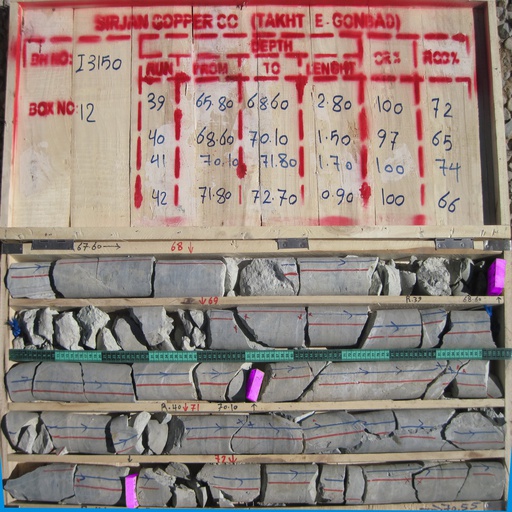 SIRJAN COPPER CO (TAKHT E-GONBAD)
BH NO: I3150 DEPTH
RUN FROM TO LENGHT CR% RQD%
BOX NO: 12 39 65.80 68.60 2.80 100 72
40 68.60 70.10 1.50 97 65
41 70.10 71.80 1.70 100 74
42 71.80 72.70 0.90 100 66
67.60 → 68 ↓
↓69 R.39 68.60 ↑
R.40 ↓71 70.10 ↑
72 ↓
70.55